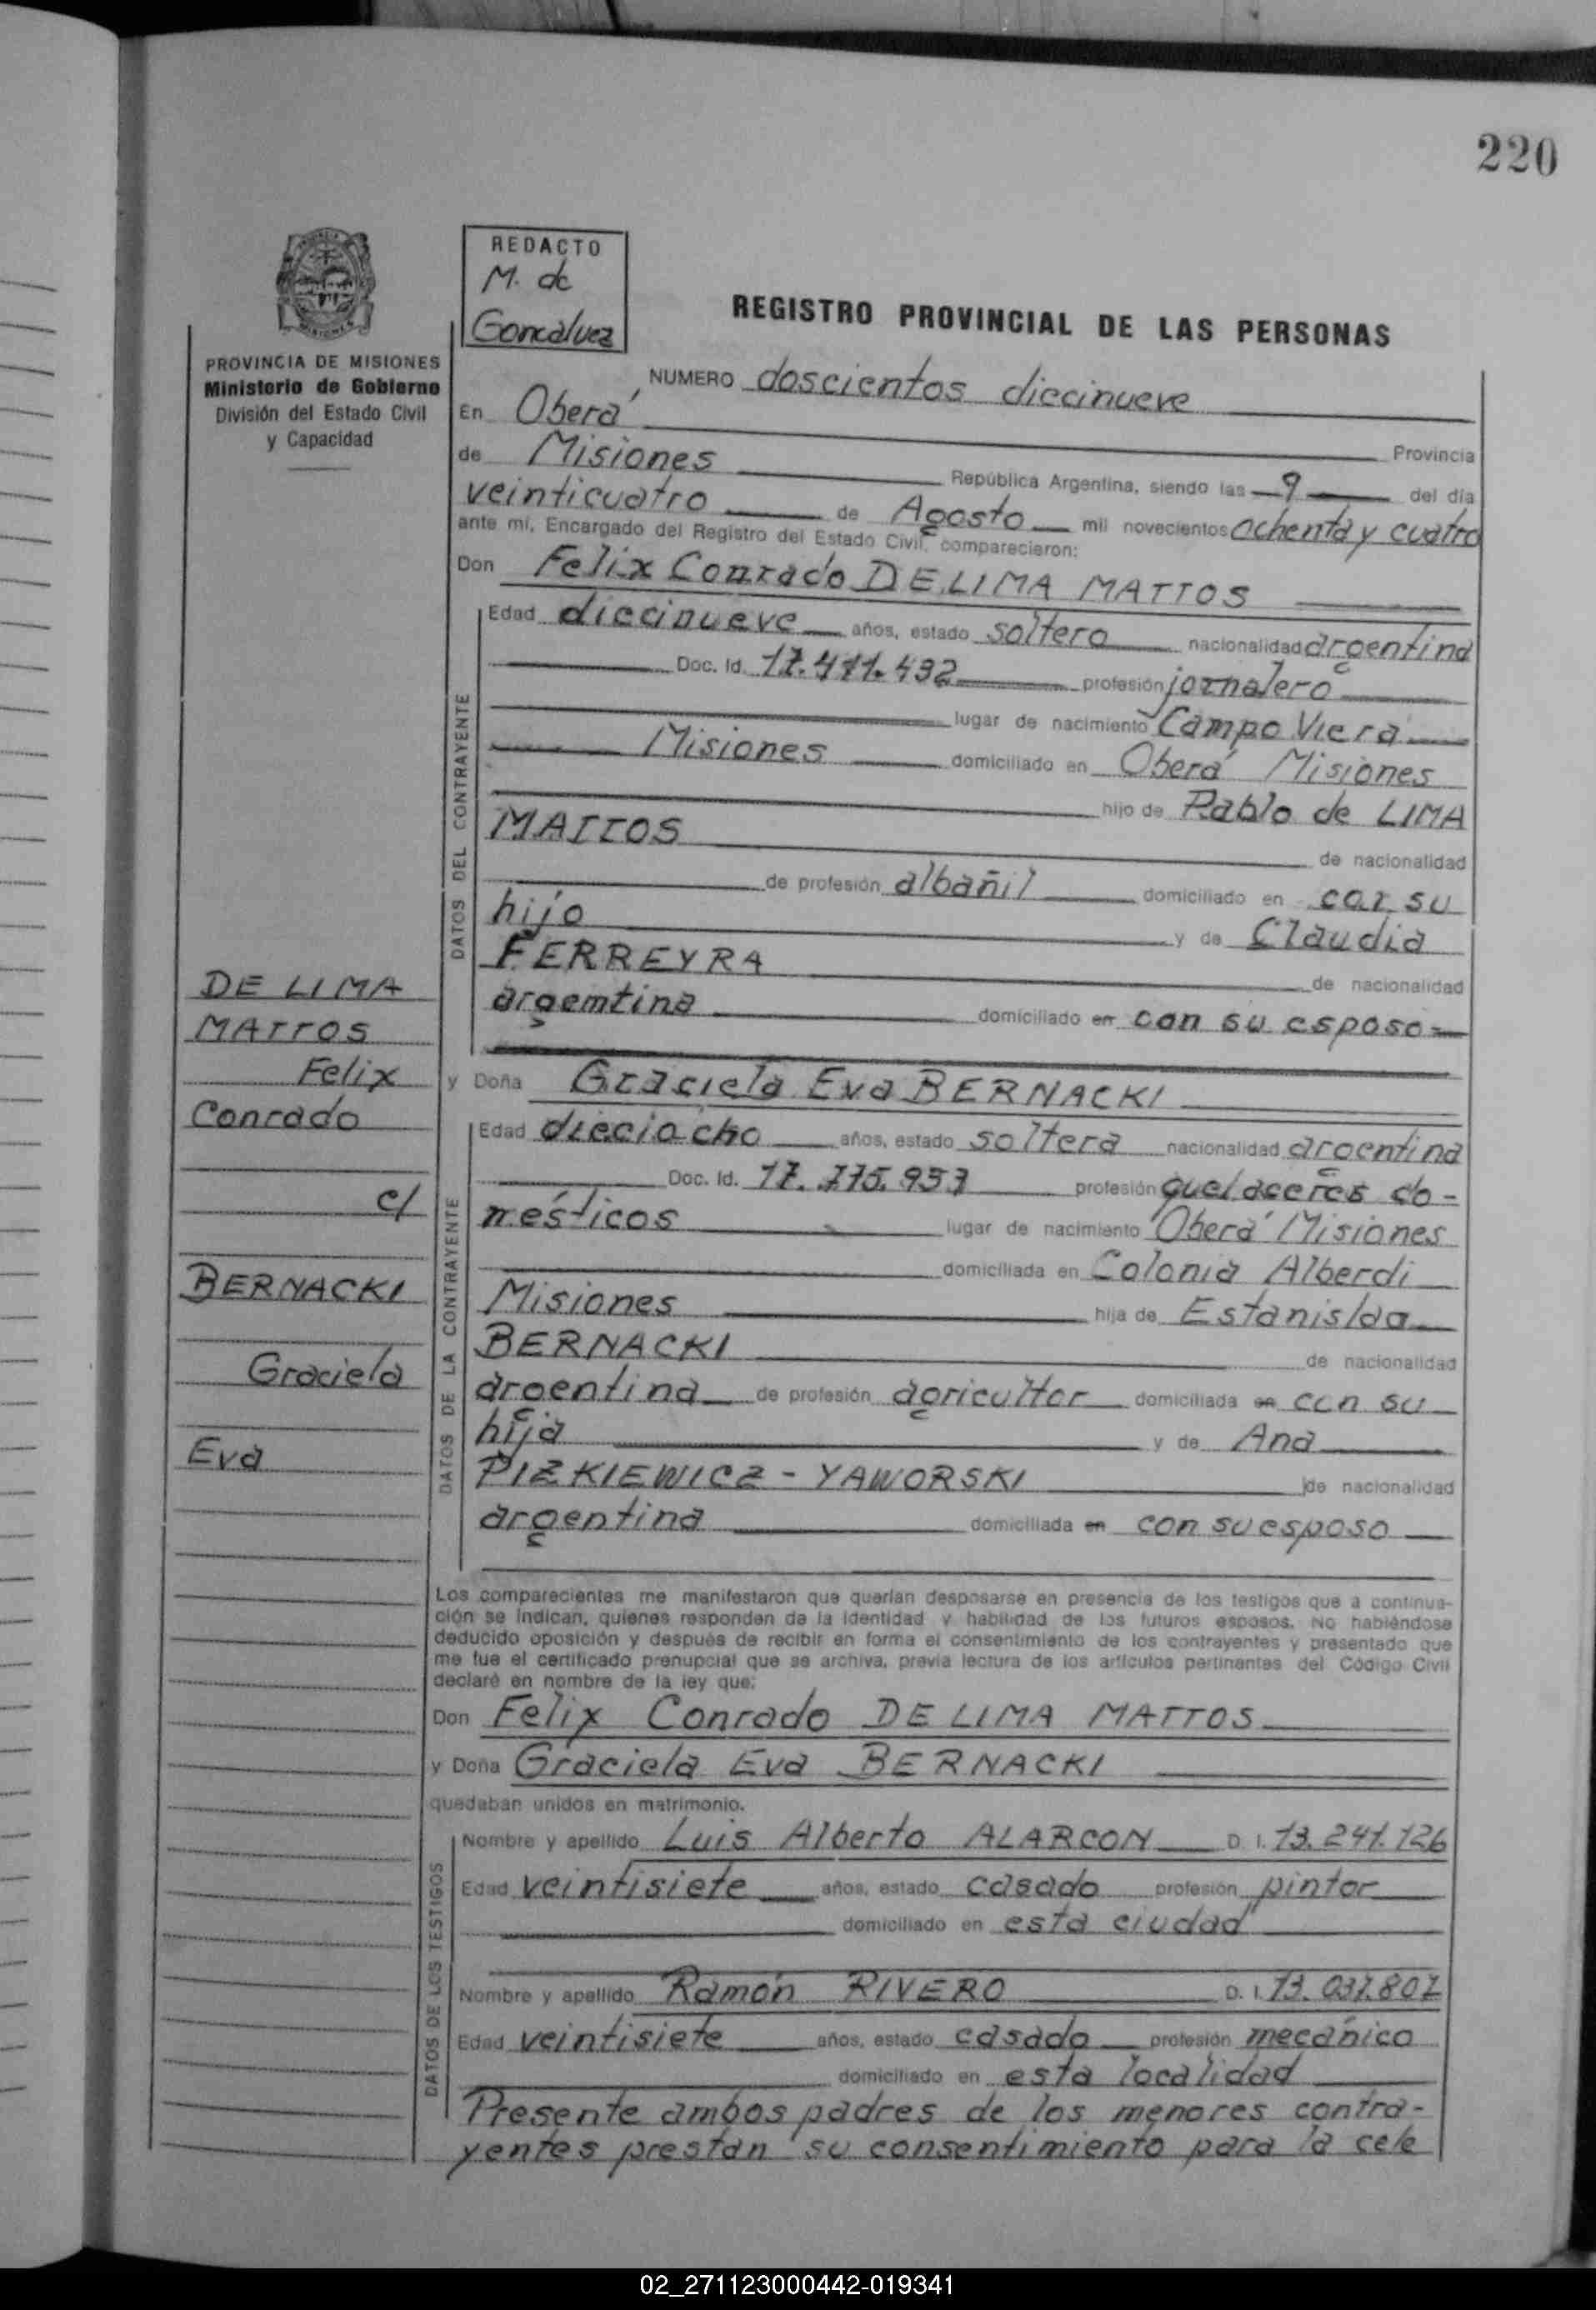 220
REDACTO
M. de
Goncalvez
REGISTRO PROVINCIAL DE LAS PERSONAS
PROVINCIA DE MISIONES
Ministerio de Gobierno
División del Estado Civil
y Capacidad
NUMERO doscientos diecinueve
En Oberá
Provincia
de Misiones República Argentina, siendo las 9 del día
veinticuatro de Agosto mil novecientos ochenta y cuatro
ante mí, Encargado del Registro del Estado Civil, comparecieron:
Don Felix Conrado DE LIMA MATTOS
DATOS DEL CONTRAYENTE
Edad diecinueve años, estado soltero nacionalidad argentina
Doc. Id. 17.411.432 profesión jornalero
lugar de nacimiento Campo Viera
Misiones domiciliado en Oberá Misiones
hijo de Pablo de LIMA
MATTOS de nacionalidad
de profesión albañil domiciliado en con su
hijo y de Claudia
FERREYRA de nacionalidad
argentina domiciliado en con su esposo
y Doña Graciela Eva BERNACKI
DATOS DE LA CONTRAYENTE
Edad dieciocho años, estado soltera nacionalidad argentina
Doc. Id. 17.775.957 profesión quehaceres do-
mésticos lugar de nacimiento Oberá Misiones
domiciliada en Colonia Alberdi
Misiones hija de Estanislao
BERNACKI de nacionalidad
argentina de profesión agricultor domiciliada en con su
hija y de Ana
PIZKIEWICZ - YAWORSKI de nacionalidad
argentina domiciliada en con su esposo
DE LIMA
MATTOS
Felix
Conrado
c/
BERNACKI
Graciela
Eva
Los comparecientes me manifestaron que querían desposarse en presencia de los testigos que a continua-
ción se indican, quienes responden de la identidad y habilidad de los futuros esposos. No habiéndose
deducido oposición y después de recibir en forma el consentimiento de los contrayentes y presentado que
me fue el certificado prenupcial que se archiva, previa lectura de los artículos pertinentes del Código Civil
declaré en nombre de la ley que:
Don Felix Conrado DE LIMA MATTOS
y Doña Graciela Eva BERNACKI
quedaban unidos en matrimonio.
DATOS DE LOS TESTIGOS
Nombre y apellido Luis Alberto ALARCON D. I. 13.241.126
Edad veintisiete años, estado casado profesión pintor
domiciliado en esta ciudad
Nombre y apellido Ramón RIVERO D. I. 13.037.807
Edad veintisiete años, estado casado profesión mecánico
domiciliado en esta localidad
Presente ambos padres de los menores contra-
yentes prestan su consentimiento para la cele
02_271123000442-019341